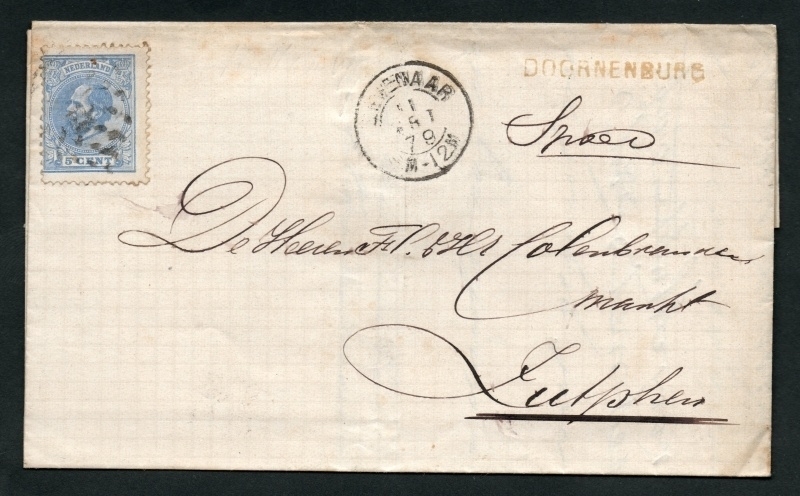 NEDERLAND
5 CENT
NAAR
11
79
M-12M
DOORNENBURG
Spoed
De Heeren
Colenbrander
markt
Zutphen